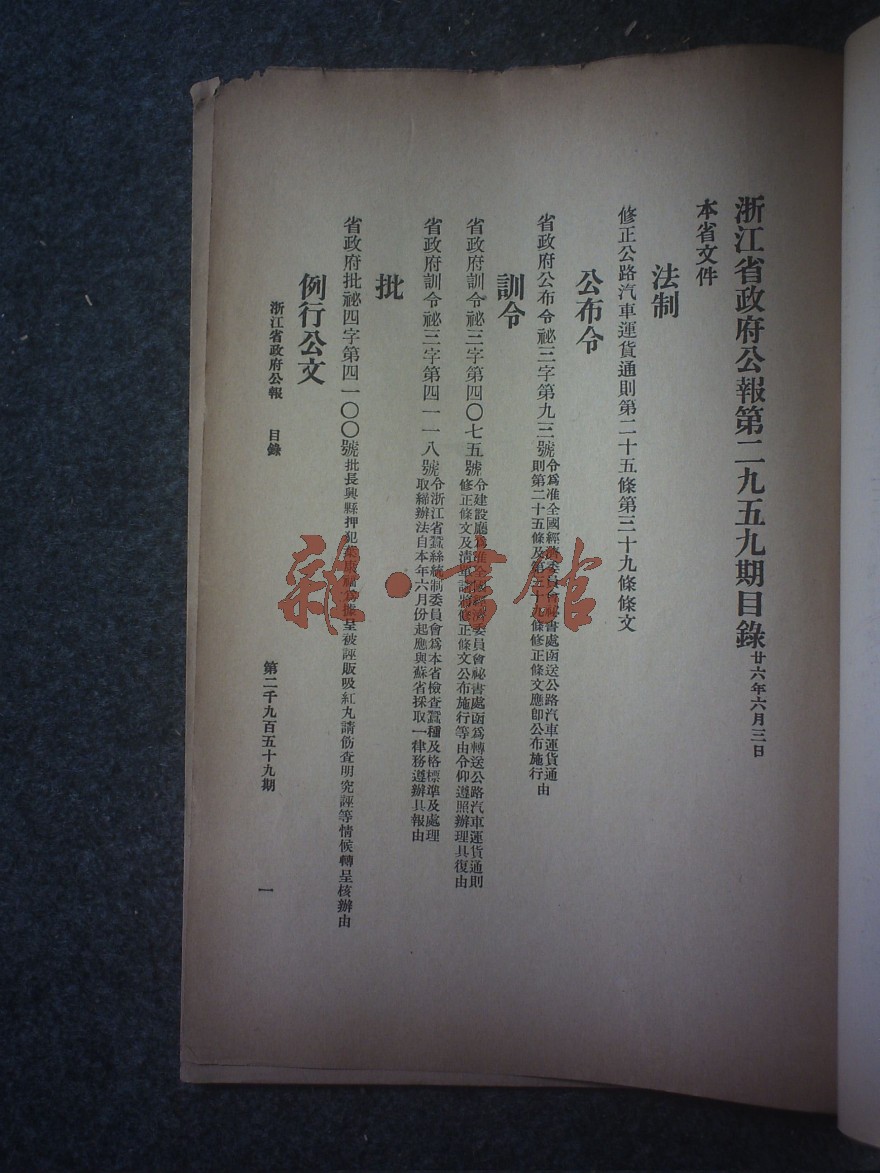 浙江省政府公報第二九五九期目錄廿六年六月三日
本省文件
法制
修正公路汽車運貨通則第二十五條第三十九條條文
公布令
省政府公布令祕三字第九三號令爲准全國經濟委員會祕書處函送公路汽車運貨通
則第二十五條及第三十九條修正條文應卽公布施行由
訓令
省政府訓令祕三字第四〇七五號令建設廳爲准全國經濟委員會祕書處函爲轉送公路汽車運貨通則
修正條文及淸單請將修正條文公布施行等由令仰遵照辦理具復由
省政府訓令祕三字第四一一八號令浙江省蠶絲統制委員會爲本省檢查蠶種及格標準及處理
取締辦法自本年六月份起應與蘇省採取一律務遵辦具報由
批
省政府批祕四字第四一〇〇號批長興縣押犯葉康爲據呈被誣販吸紅丸請飭查明究誣等情候轉呈核辦由
例行公文
浙江省政府公報 目錄 第二千九百五十九期 一
雜·書館